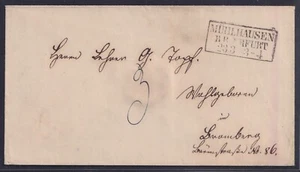 MÜHLHAUSEN
R.B. ERFURT
Herrn Lehrer G. Topf.
Wohlgeboren
in
Bromberg
№ 86.